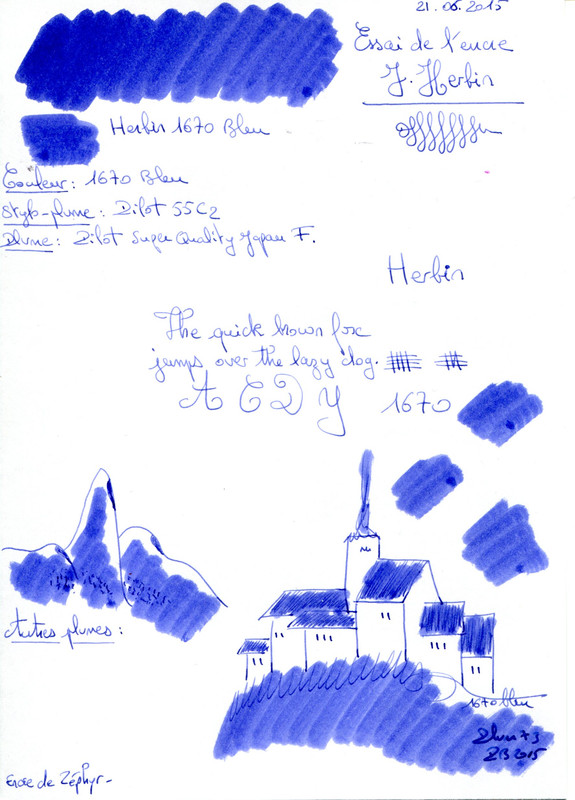 21.06.2015
Essai de l'encre
J. Herbin
Herbin 1670 Bleu
Couleur : 1670 Bleu
Stylo-plume : Pilot 55C2
Plume : Pilot Super Quality Japan F.
Herbin
The quick brown fox
jumps over the lazy dog.
A E D Y
1670
Autres plumes :
1670 bleu
2015
Encre de Zéphyr -